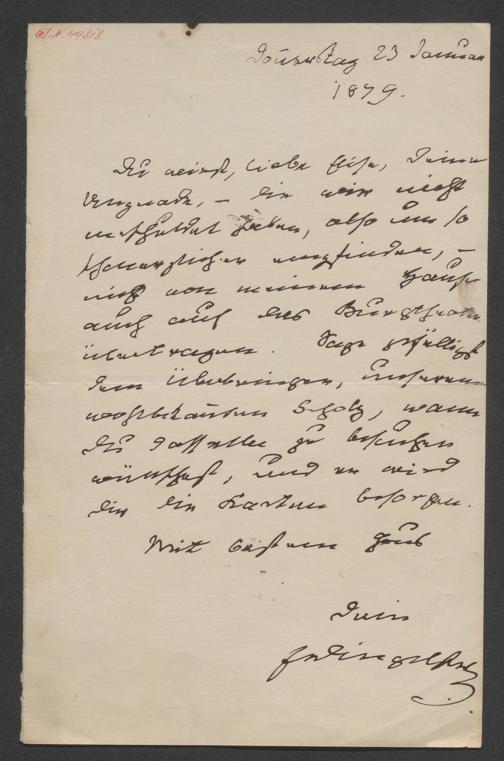 I N 49818
Donnerstag 23 Januar
1879.
Du wirst, liebe Elise, Deine
Ungnade, – die wir nicht
verschuldet haben, also um so
schmerzlicher empfinden, –
nicht von meinem Hause
auch auf das Burgtheater
übertragen. Sage gefälligst
dem Überbringer, unserem
wohlbekannten Scholz, wann
Du dasselbe zu besuchen
wünschest, und er wird
Dir die Karten besorgen.
Mit bestem Gruß
Dein
FvDingelstedt